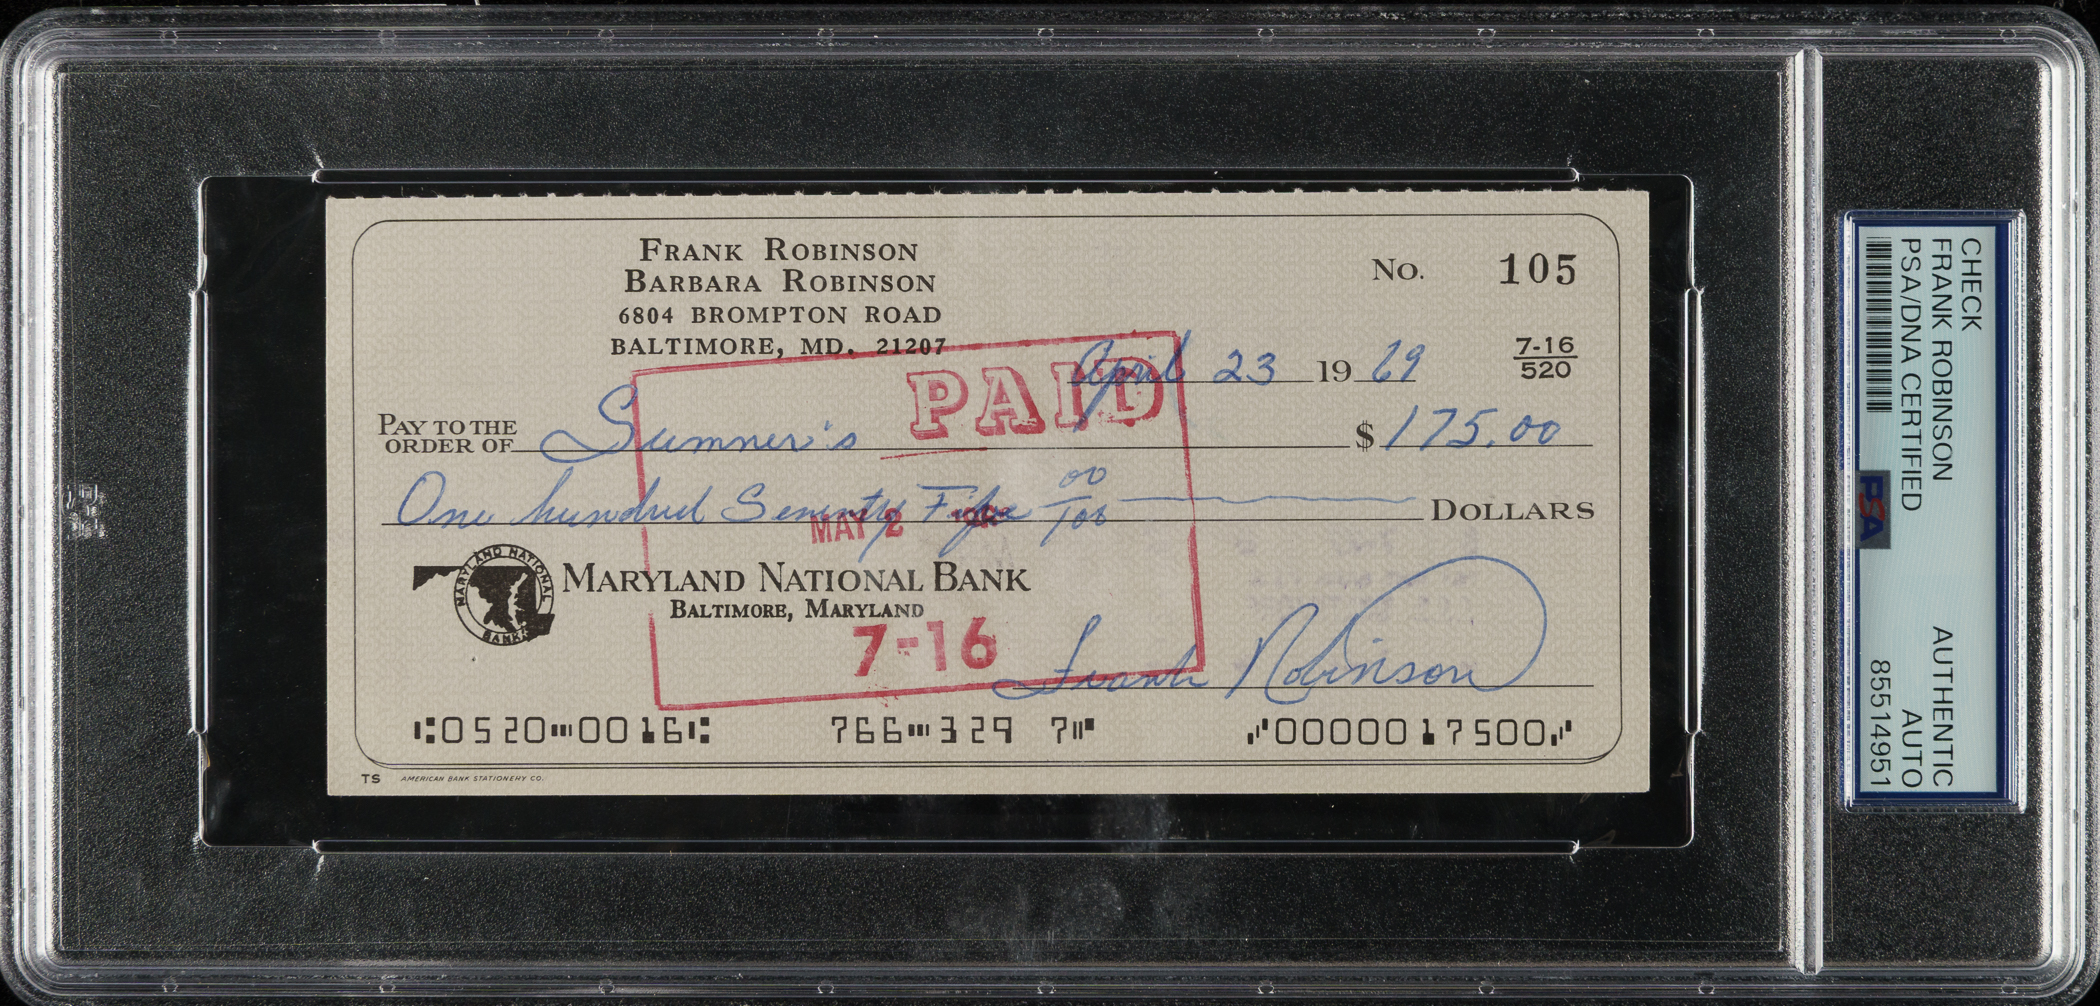 FRANK ROBINSON
BARBARA ROBINSON
6804 BROMPTON ROAD
BALTIMORE, MD. 21207
No. 105
April 23 19 69
7-16
520
PAID
PAY TO THE
ORDER OF Sumner's $ 175.00
One hundred Seventy Five 00/100 DOLLARS
MAY 2
MARYLAND NATIONAL BANK
MARYLAND NATIONAL BANK
BALTIMORE, MARYLAND
7-16
Frank Robinson
⑆0520⑉0016⑆ 766⑉329 7⑈ ⑇0000017500⑇
TS AMERICAN BANK STATIONERY CO.
CHECK
FRANK ROBINSON
PSA/DNA CERTIFIED
PSA
AUTHENTIC
AUTO
85514951